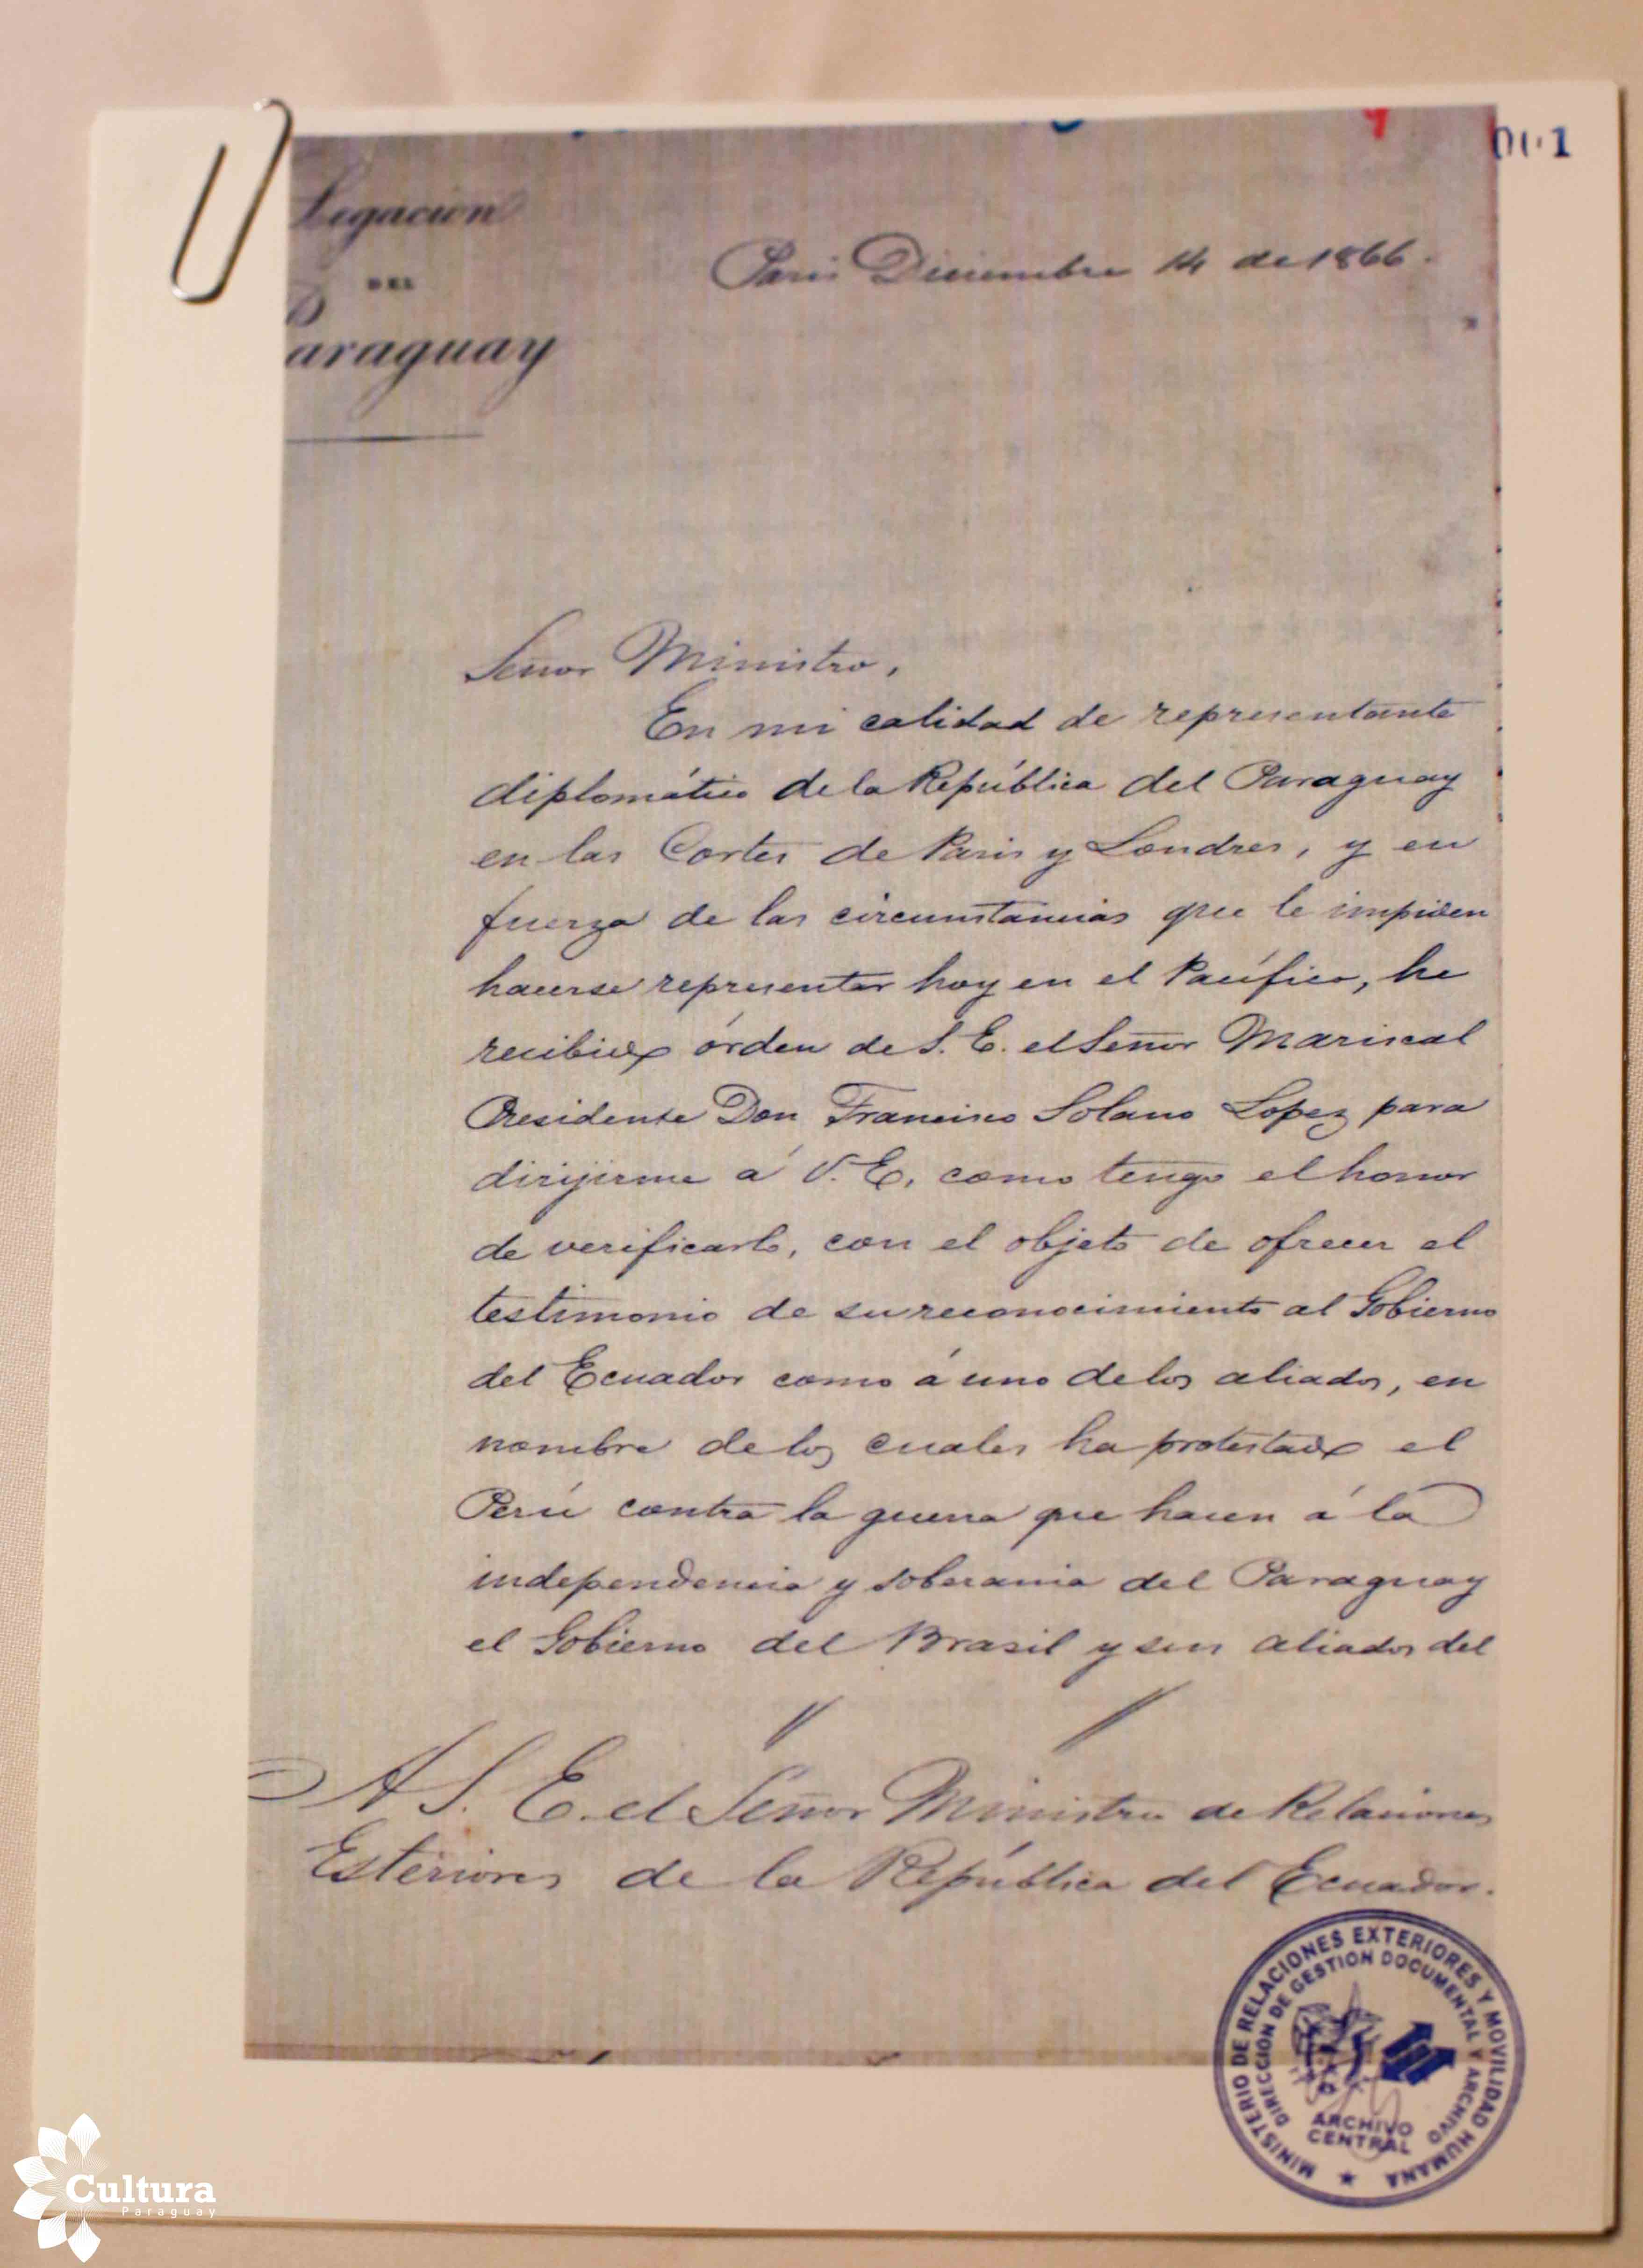 001
Legacion
DEL
Paraguay
Paris Diciembre 14 de 1866.
Señor Ministro,
En mi calidad de representante
diplomático de la República del Paraguay
en las Cortes de Paris y Londres, y en
fuerza de las circunstancias que le impiden
hacerse representar hoy en el Pacífico, he
recibido órden de S. E. el Señor Mariscal
Presidente Don Francisco Solano Lopez para
dirijirme á V. E. como tengo el honor
de verificarlo, con el objeto de ofrecer el
testimonio de su reconocimiento al Gobierno
del Ecuador como á uno de los aliados, en
nombre de los cuales ha protestado el
Perú contra la guerra que hacen á la
independencia y soberania del Paraguay
el Gobierno del Brasil y sus aliados del
A S. E. el Señor Ministro de Relaciones
Esteriores de la República del Ecuador.
MINISTERIO DE RELACIONES EXTERIORES Y MOVILIDAD HUMANA
DIRECCIÓN DE GESTION DOCUMENTAL Y ARCHIVO
ARCHIVO
CENTRAL
Cultura
Paraguay